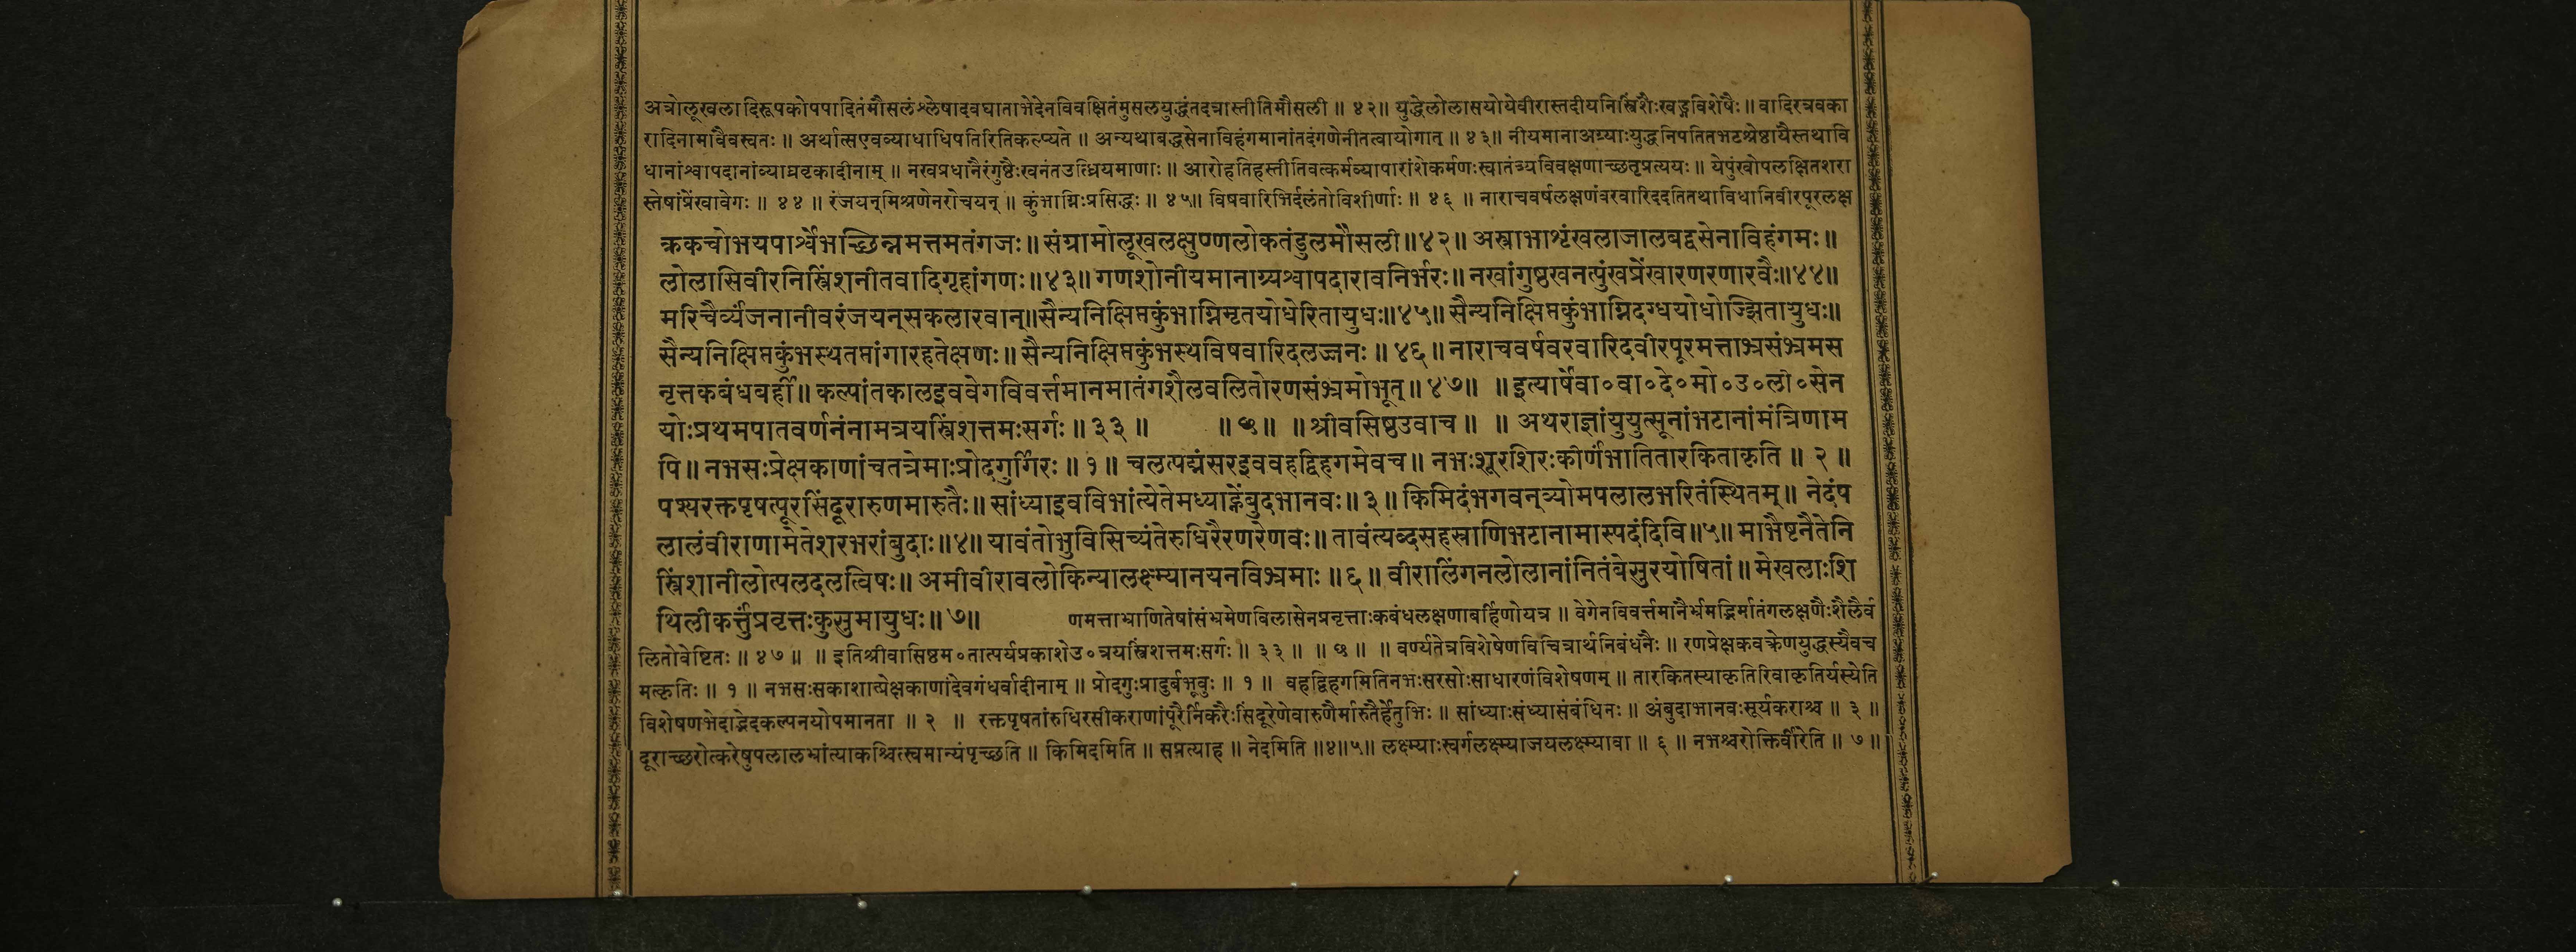 अत्रोलूखलादिरूपकोपपादितंमौसलंश्लेषादवघाताभेदेनविवक्षितंमुसलयुद्धंतदत्रास्तीतिमौसली ॥ ४२॥ युद्धेलोलासयोयेवीरास्तदीयनिस्त्रिंशैःखड्गविशेषैः ॥ वादिरत्रवका
रादिनामावैवस्वतः ॥ अर्थात्सएवव्याधाधिपतिरितिकल्प्यते ॥ अन्यथाबद्धसेनाविहंगमानांतदंगणेनीतत्वायोगात् ॥ ४३॥ नीयमानाअग्र्याःयुद्धनिपतितभटश्रेष्ठायैस्तथावि
धानांश्वापदानांव्याघ्रवृकादीनाम् ॥ नखप्रधानैरंगुष्ठैःखनंतउत्ध्रियमाणाः ॥ आरोहतिहस्तीतिवत्कर्मव्यापारांशेकर्मणःस्वातंत्र्यविवक्षणाच्छतृप्रत्ययः ॥ येपुंखोपलक्षितशरा
स्तेषांप्रेंखावेगः ॥ ४४ ॥ रंजयन्मिश्रणेनरोचयन् ॥ कुंभाग्निःप्रसिद्धः ॥ ४५॥ विषवारिभिर्दलंतोविशीर्णाः ॥ ४६ ॥ नाराचवर्षलक्षणंवरवारिददतितथाविधानिवीरपूरलक्ष
क्रकचोभयपार्श्वेभच्छिन्नमत्तमतंगजः॥ संग्रामोलूखलक्षुण्णलोकतंडुलमौसली॥४२॥ अस्त्राभाशृंखलाजालबद्धसेनाविहंगमः॥
लोलासिवीरनिस्त्रिंशनीतवादिगृहांगणः॥४३॥ गणशोनीयमानाग्र्यश्वापदारावनिर्भरः॥ नखांगुष्ठखनत्पुंखप्रेंखारणरणारवैः॥४४॥
मरिचैर्व्यंजनानीवरंजयन्सकलारवान्॥सैन्यनिक्षिप्तकुंभाग्निमृतयोधेरितायुधः॥४५॥ सैन्यनिक्षिप्तकुंभाग्निदग्धयोधोज्झितायुधः॥
सैन्यनिक्षिप्तकुंभस्थतप्तांगारहतेक्षणः॥ सैन्यनिक्षिप्तकुंभस्थविषवारिदलज्जनः॥ ४६॥ नाराचवर्षवरवारिदवीरपूरमत्ताभ्रसंभ्रमस
नृत्तकबंधबर्ही॥ कल्पांतकालइववेगविवर्त्तमानमातंगशैलवलितोरणसंभ्रमोभूत्॥ ४७॥ ॥ इत्यार्षेवा०वा०दे०मो०उ०ली०सेन
योःप्रथमपातवर्णनंनामत्रयस्त्रिंशत्तमःसर्गः॥ ३३॥ ॥ छ॥ ॥ श्रीवसिष्ठउवाच॥ ॥ अथराज्ञांयुयुत्सूनांभटानांमंत्रिणाम
पि॥ नभसःप्रेक्षकाणांचतत्रेमाःप्रोदगुर्गिरः॥ १॥ चलत्पद्मंसरइववहद्विहगमेवच॥ नभःशूरशिरःकीर्णंभातितारकिताकृति॥ २॥
पश्यरक्तपृषत्पूरसिंदूरारुणमारुतैः॥ सांध्याइवविभांत्येतेमध्याह्नेंबुदभानवः॥ ३॥ किमिदंभगवन्व्योमपलालभरितंस्थितम्॥ नेदंप
लालंवीराणामेतेशरभरांबुदाः॥४॥ यावंतोभुविसिच्यंतेरुधिरैरणरेणवः॥ तावंत्यब्दसहस्राणिभटानामास्पदंदिवि॥५॥ माभैष्टनैतेनि
स्त्रिंशानीलोत्पलदलत्विषः॥ अमीवीरावलोकिन्यालक्ष्म्यानयनविभ्रमाः॥६॥ वीरालिंगनलोलानांनितंबेसुरयोषितां॥ मेखलाःशि
थिलीकर्त्तुंप्रवृत्तःकुसुमायुधः॥ ७॥ णमत्ताभ्राणितेषांसंभ्रमेणविलासेनप्रनृत्ताःकबंधलक्षणाबर्हिणोयत्र ॥ वेगेनविवर्त्तमानैर्भ्रमद्भिर्मातंगलक्षणैःशैलैर्व
लितोवेष्टितः ॥ ४७ ॥ ॥ इतिश्रीवासिष्ठम०तात्पर्यप्रकाशेउ०त्रयस्त्रिंशत्तमःसर्गः॥ ३३ ॥ ॥ छ ॥ ॥ वर्ण्यतेत्रविशेषेणविचित्रार्थनिबंधनैः ॥ रणप्रेक्षकवक्त्रेणयुद्धस्यैवच
मत्कृतिः ॥ १ ॥ नभसःसकाशात्प्रेक्षकाणांदेवगंधर्वादीनाम् ॥ प्रोदगुःप्रादुर्बभूवुः ॥ १ ॥ वहद्विहगमितिनभःसरसोःसाधारणंविशेषणम् ॥ तारकितस्याकृतिरिवाकृतिर्यस्येति
विशेषणभेदाद्भेदकल्पनयोपमानता ॥ २ ॥ रक्तपृषतांरुधिरसीकराणांपूरैर्निकरैःसिंदूरेणेवारुणैर्मारुतैर्हेतुभिः ॥ सांध्याःसंध्यासंबंधिनः ॥ अंबुदाभानवःसूर्यकराश्च ॥ ३ ॥
दूराच्छरोत्करेषुपलालभ्रांत्याकश्चित्स्वमान्यंपृच्छति ॥ किमिदमिति ॥ सप्रत्याह ॥ नेदमिति ॥४॥५॥ लक्ष्म्याःस्वर्गलक्ष्म्याजयलक्ष्म्यावा ॥ ६ ॥ नभश्चरोक्तिर्वीरेति ॥ ७ ॥